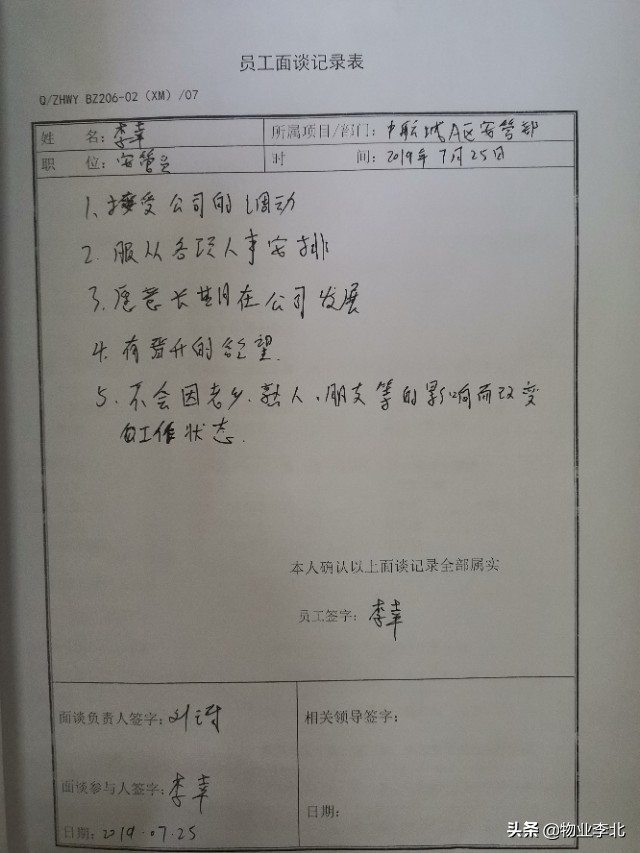 员工面谈记录表
Q/ZHWY BZ206-02（XM）/07
姓 名：李幸 所属项目/部门：中联城A区安管部
职 位：安管员 时 间：2019年7月25日
1、接受公司的调动
2、服从各项人事安排
3、愿意长期在公司发展
4、有晋升的欲望.
5、不会因老乡、熟人、朋友等的影响而改变
工作状态.
本人确认以上面谈记录全部属实
员工签字：李幸
面谈负责人签字：刘
相关领导签字：
面谈参与人签字：李幸
日期：2019.07.25
日期：
头条 @物业李北